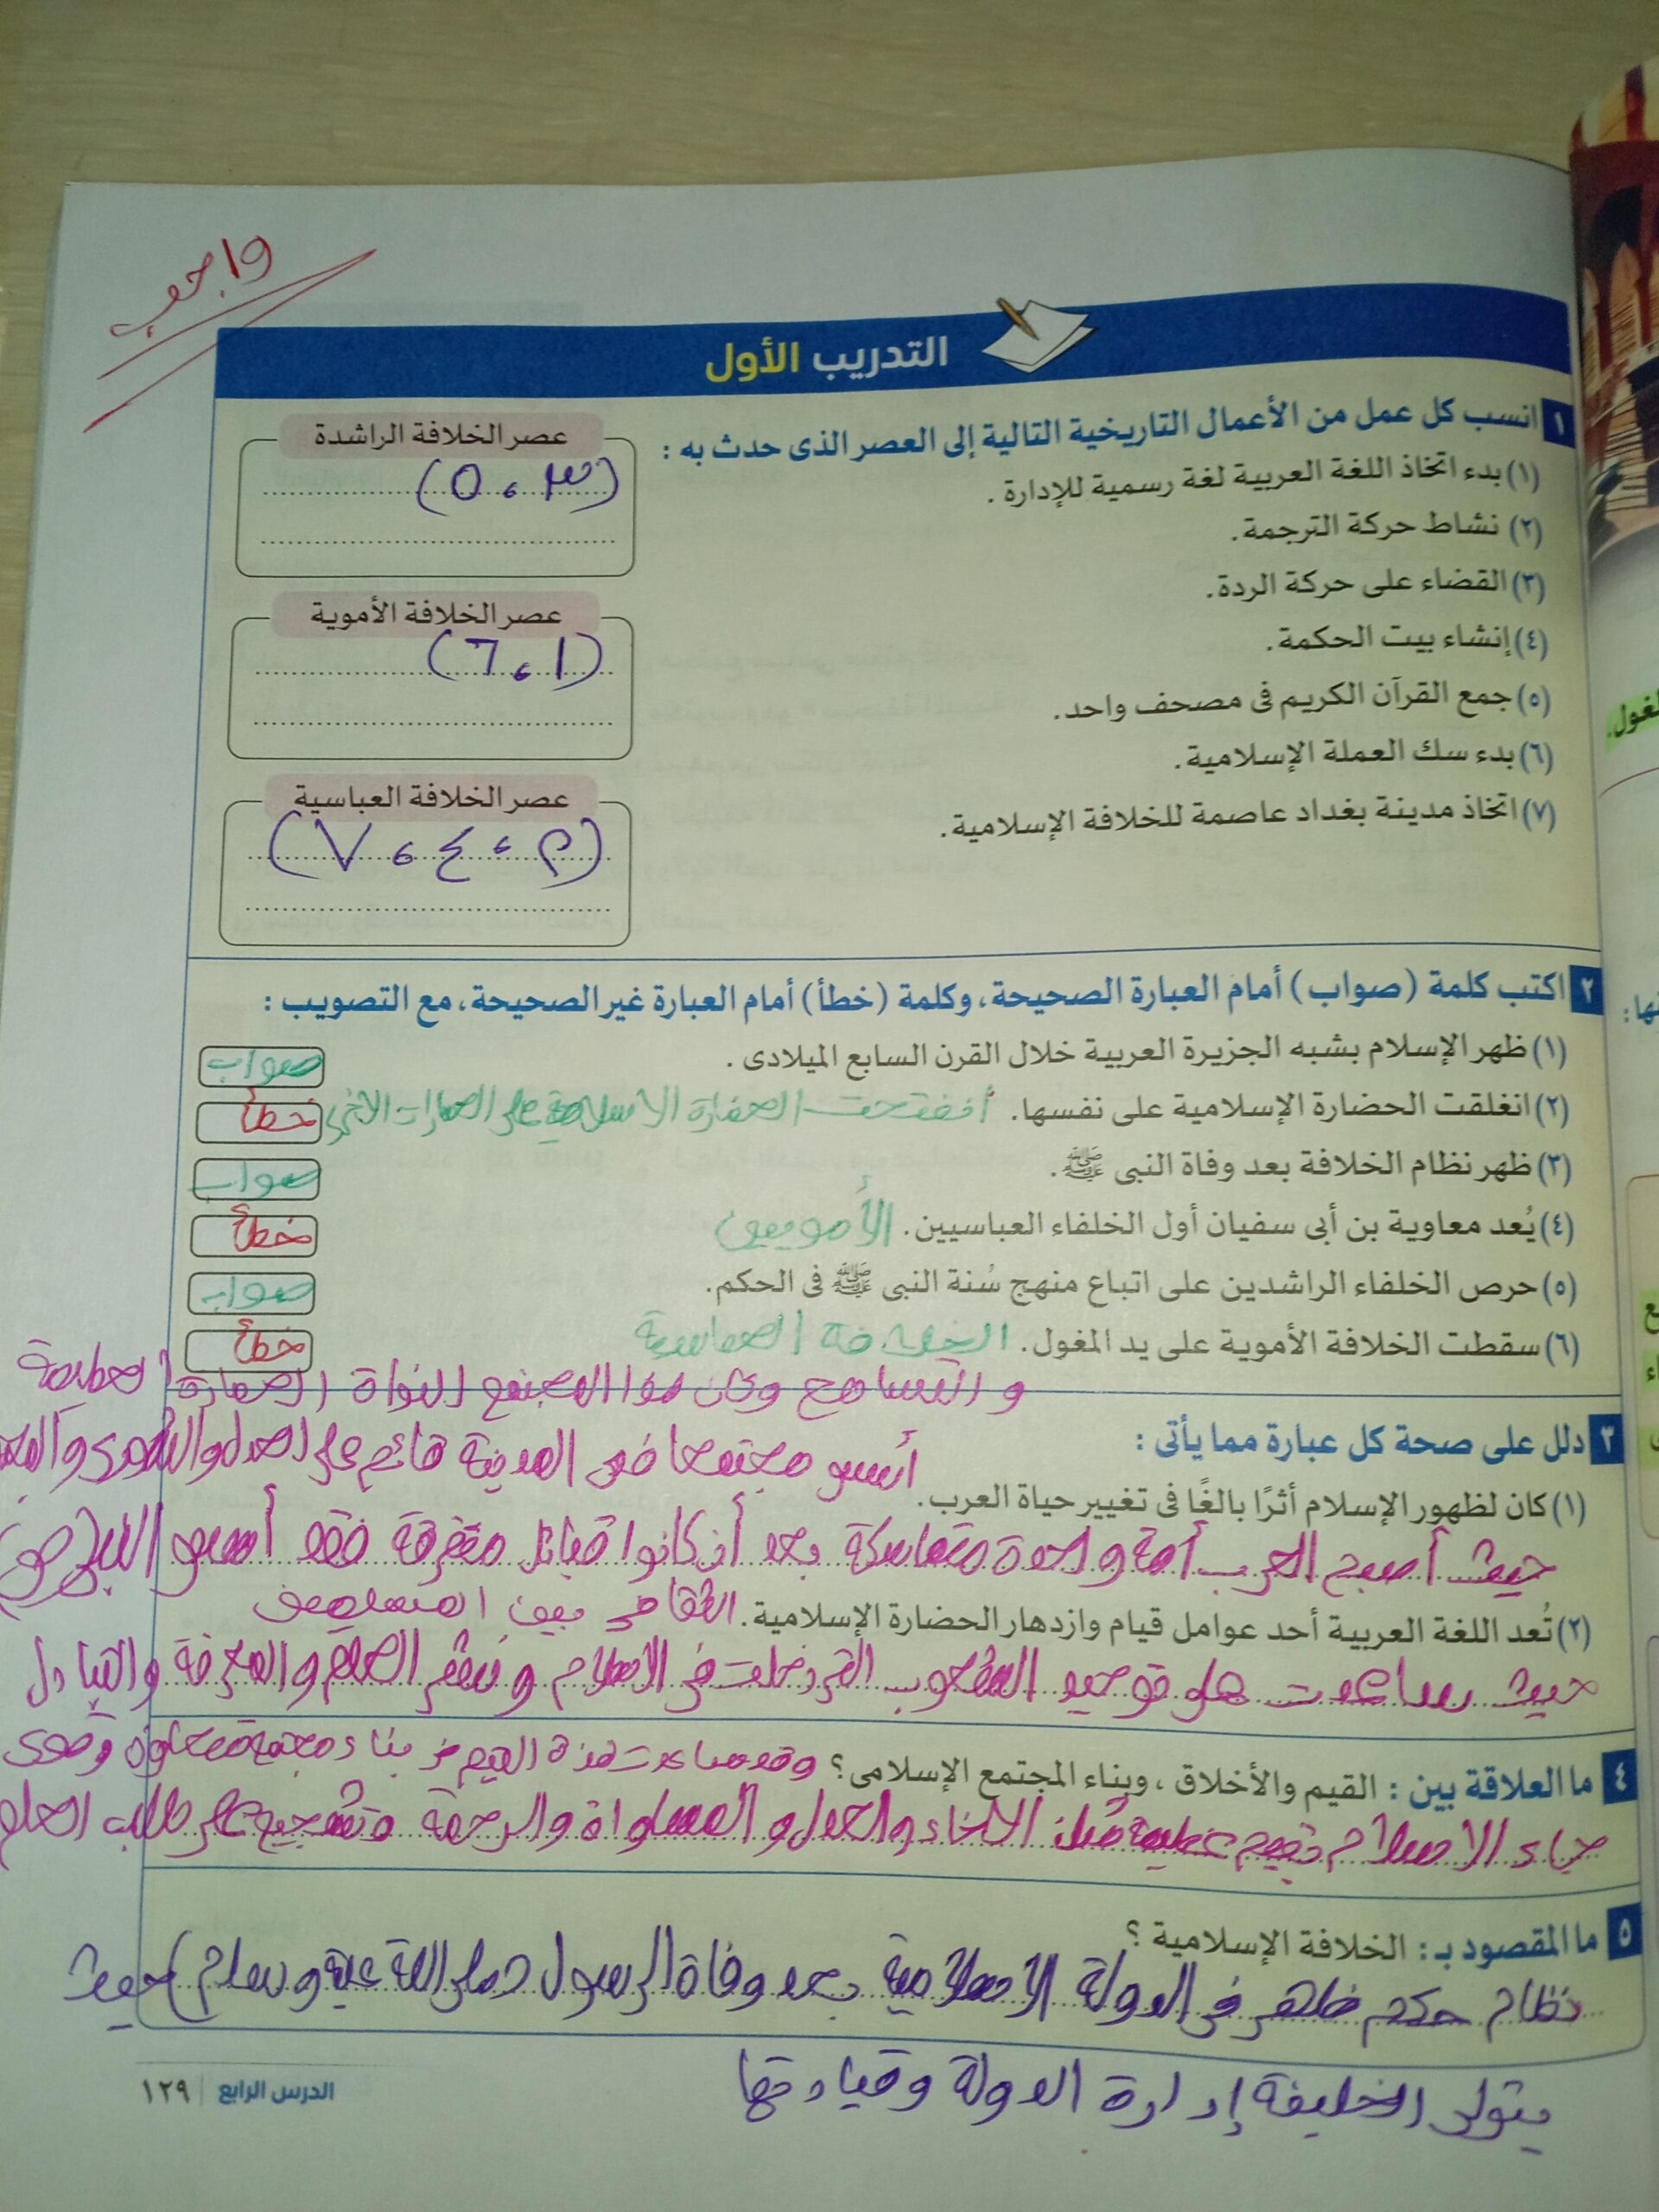 واجب
التدريب الأول
١ انسب كل عمل من الأعمال التاريخية التالية إلى العصر الذى حدث به :
(١) بدء اتخاذ اللغة العربية لغة رسمية للإدارة .
(٢) نشاط حركة الترجمة.
(٣) القضاء على حركة الردة.
(٤) إنشاء بيت الحكمة.
(٥) جمع القرآن الكريم فى مصحف واحد.
(٦) بدء سك العملة الإسلامية.
(٧) اتخاذ مدينة بغداد عاصمة للخلافة الإسلامية.
عصر الخلافة الراشدة
(٣ ، ٥)
عصر الخلافة الأموية
(١ ، ٦)
عصر الخلافة العباسية
(٢ ، ٤ ، ٧)
٢ اكتب كلمة (صواب) أمام العبارة الصحيحة، وكلمة (خطأ) أمام العبارة غير الصحيحة، مع التصويب :
(١) ظهر الإسلام بشبه الجزيرة العربية خلال القرن السابع الميلادى . صواب
(٢) انغلقت الحضارة الإسلامية على نفسها. الحضارة الاسلامية على الحضارات الاخرى خطأ
(٣) ظهر نظام الخلافة بعد وفاة النبى ﷺ. صواب
(٤) يُعد معاوية بن أبى سفيان أول الخلفاء العباسيين. الأمويين خطأ
(٥) حرص الخلفاء الراشدين على اتباع منهج سُنة النبى ﷺ فى الحكم. صواب
(٦) سقطت الخلافة الأموية على يد المغول. الخلافة العباسية خطأ
والتسامح وكان هذا المجتمع النواة الحضارة العظيمة
٣ دلل على صحة كل عبارة مما يأتى :
أسس مجتمعا فى المدينة قائم على العدل والشورى
(١) كان لظهور الإسلام أثرًا بالغًا فى تغيير حياة العرب.
حيث أصبح العرب أمة واحدة متماسكة بعد أن كانوا قبائل متفرقة فقد أسس النبى (ص)
(٢) تُعد اللغة العربية أحد عوامل قيام وازدهار الحضارة الإسلامية. الثقافى بين المسلمين
حيث ساعدت على توحيد الشعوب التى دخلت فى الاسلام ونشر العلم والمعرفة والتبادل
٤ ما العلاقة بين : القيم والأخلاق ، وبناء المجتمع الإسلامى ؟ وقد ساعدت هذة القيم فى بناء مجتمع متعاون وقوى
جاء الاسلام بقيم عظيمة مثل الاخاء والعدل و المساواة والرحمة وتشجيع على طلب العلم
٥ ما المقصود بـ : الخلافة الإسلامية ؟
نظام حكم ظهر فى الدولة الاسلامية بعد وفاة الرسول صلى اللة علية وسلم) حيث
يتولى الخليفة إدارة الدولة وقيادتها
الدرس الرابع | ١٢٩